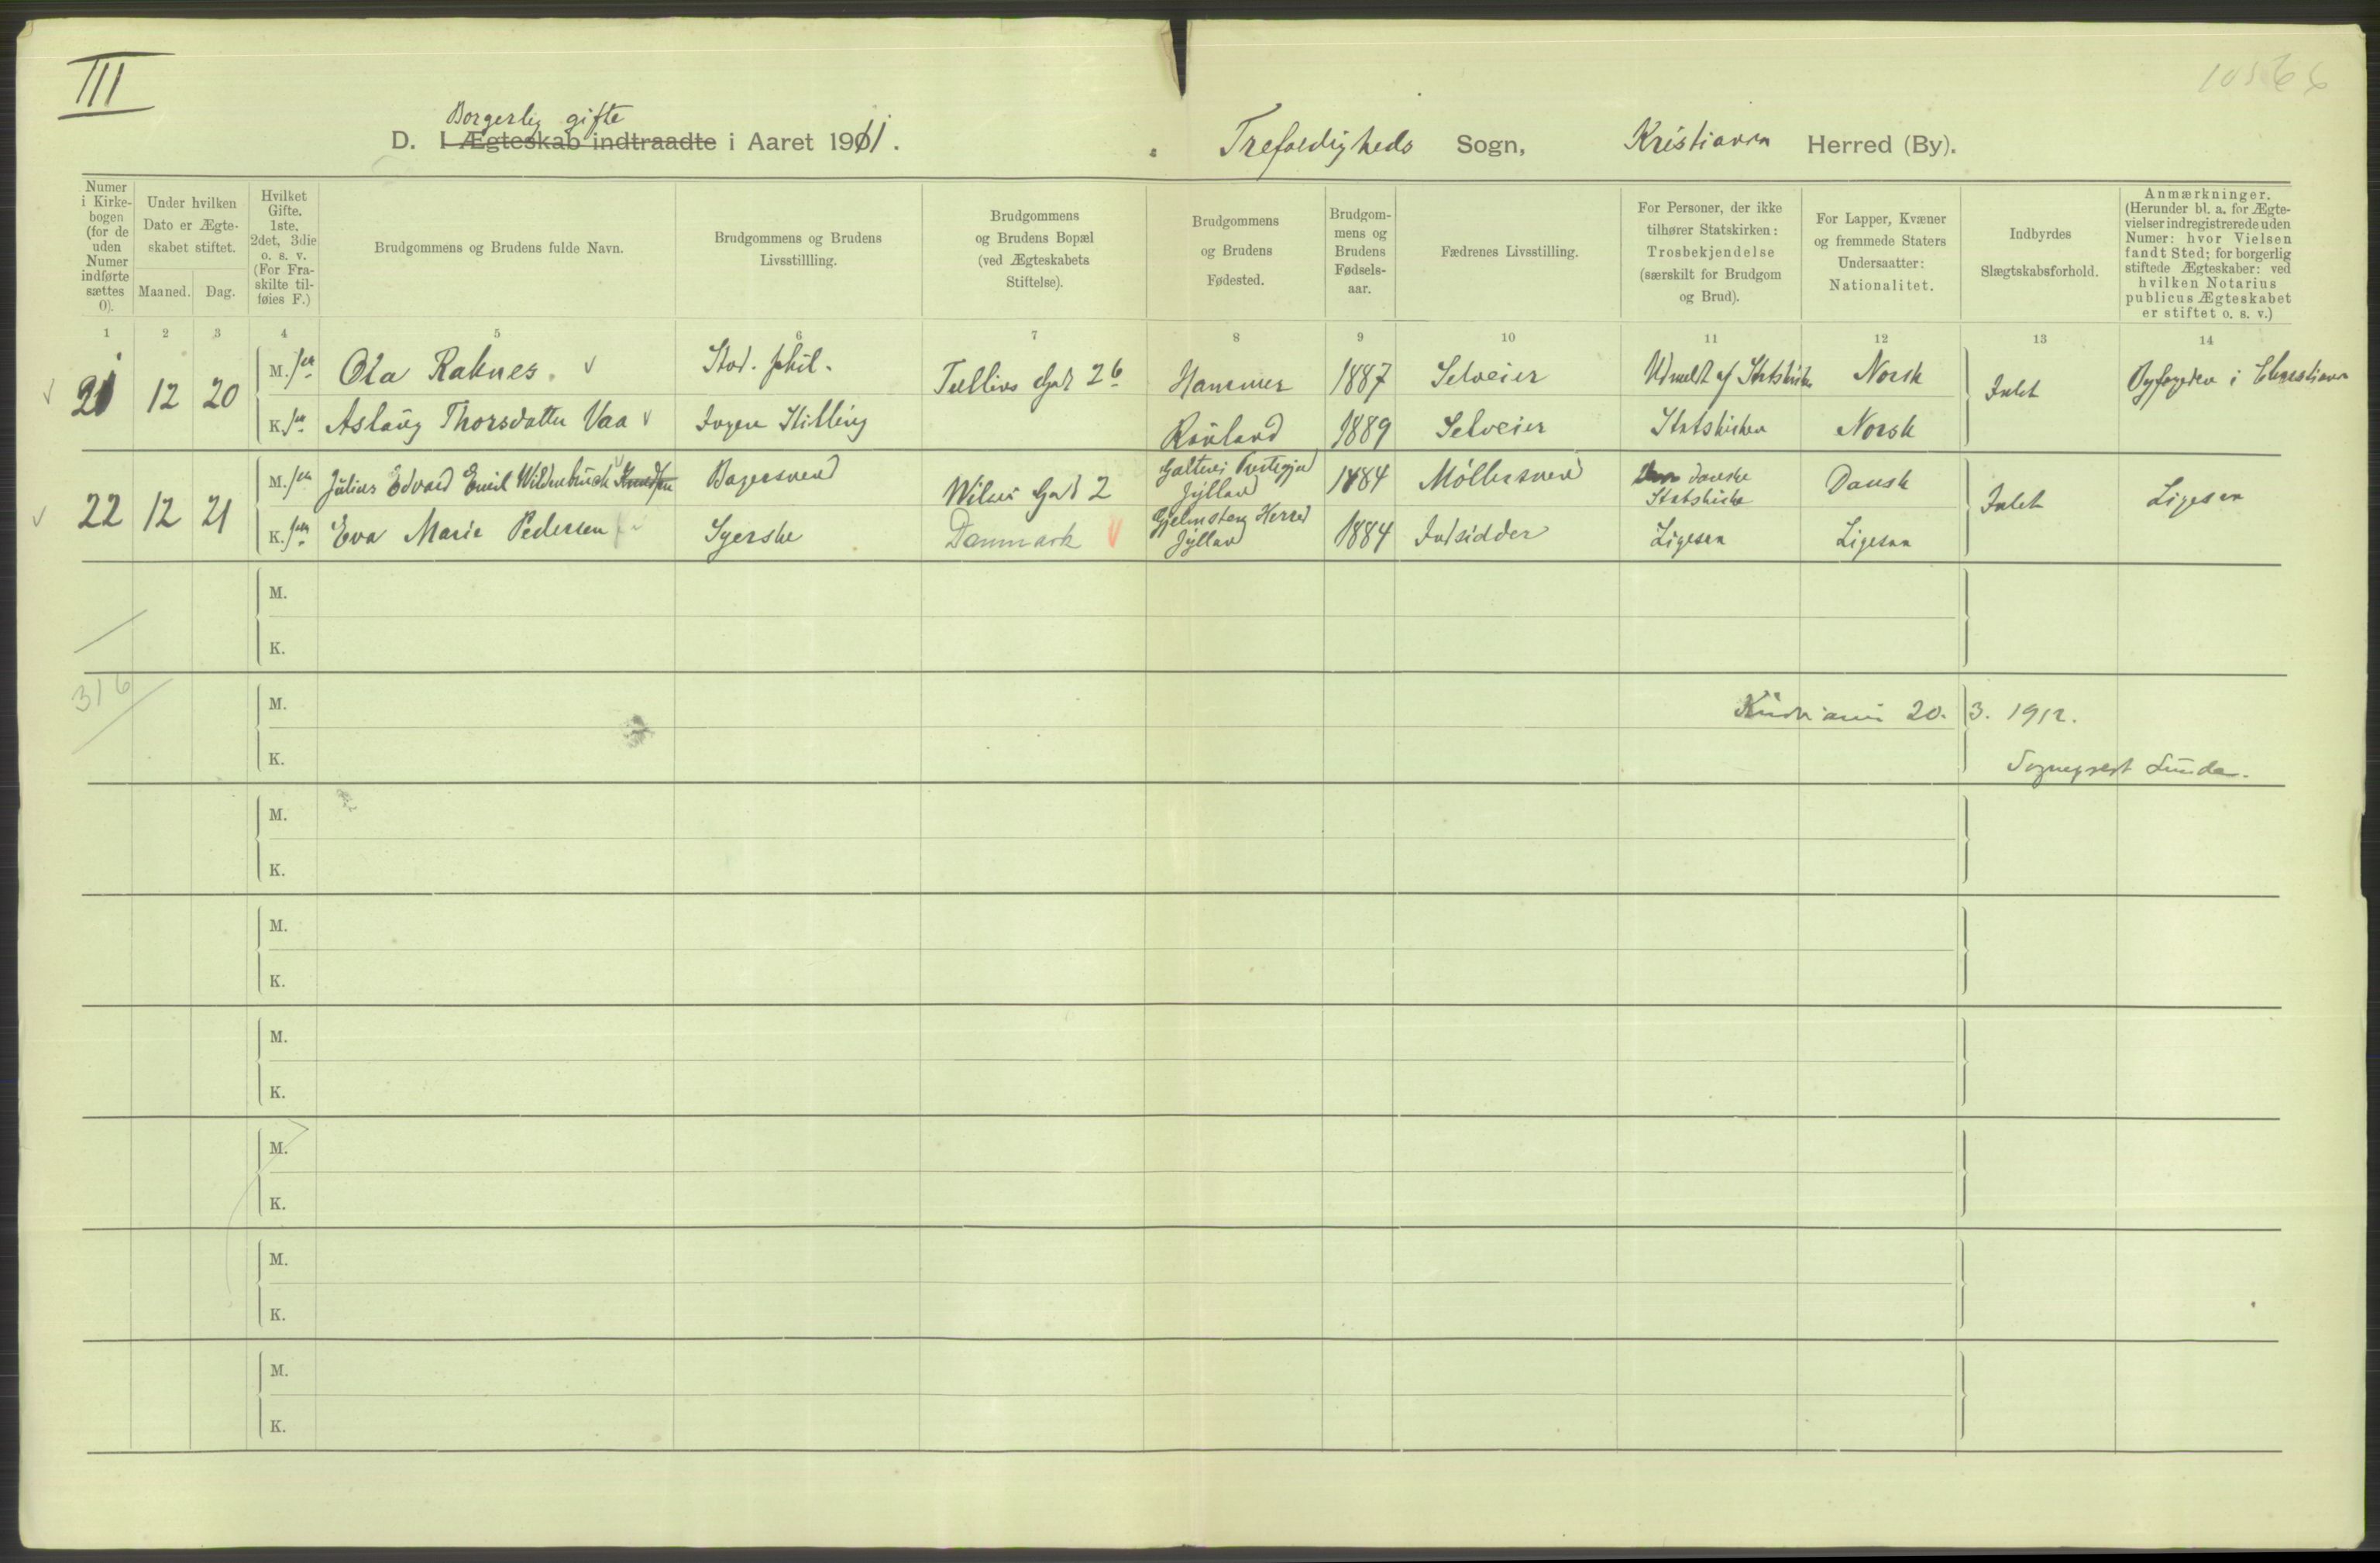 III
10566
Borgerlig gifte
D. I Ægteskab indtraadte i Aaret 1911. Trefoldigheds Sogn, Kristiania Herred (By).
Numer i Kirkebogen (for de uden Numer indførte sættes 0).
Under hvilken Dato er Ægteskabet stiftet.
Maaned. Dag.
Hvilket Gifte. 1ste. 2det, 3die o. s. v. (For Fraskilte tilføies F.)
Brudgommens og Brudens fulde Navn.
Brudgommens og Brudens Livsstillling.
Brudgommens og Brudens Bopæl (ved Ægteskabets Stiftelse).
Brudgommens og Brudens Fødested.
Brudgommens og Brudens Fødselsaar.
Fædrenes Livsstilling.
For Personer, der ikke tilhører Statskirken: Trosbekjendelse (særskilt for Brudgom og Brud).
For Lapper, Kvæner og fremmede Staters Undersaatter: Nationalitet.
Indbyrdes Slægtskabsforhold.
Anmærkninger. (Herunder bl. a. for Ægtevielser indregistrerede uden Numer: hvor Vielsen fandt Sted; for borgerlig stiftede Ægteskaber: ved hvilken Notarius publicus Ægteskabet er stiftet o. s. v.)
1 2 3 4 5 6 7 8 9 10 11 12 13 14
21 12 20 M. Ola Raknes. Stud. phil. Tullins Gad 26 Hammer 1887 Selveier Udmeldt af Statskirken Norsk Intet Byfogden i Christiania
K. Aslaug Thorsdatter Vaa Ingen Stilling Rauland 1889 Selveier Statskirken Norsk
22 12 21 M. Julius Edvard Emil Wildenbuch Knudsen Bagersvend Wilses Gad 2 Jylland 1884 Møllersvend danske Statskirke Dansk Intet Ligesaa
K. Eva Marie Pedersen Syerske Danmark Gjelmsteng Herred Jylland 1884 Indsidder Ligesaa Ligesaa
M.
K.
316
M. Kristiania 20. 3. 1912.
K. Sogneprest Lunde.
M.
K.
M.
K.
M.
K.
M.
K.
M.
K.
M.
K.